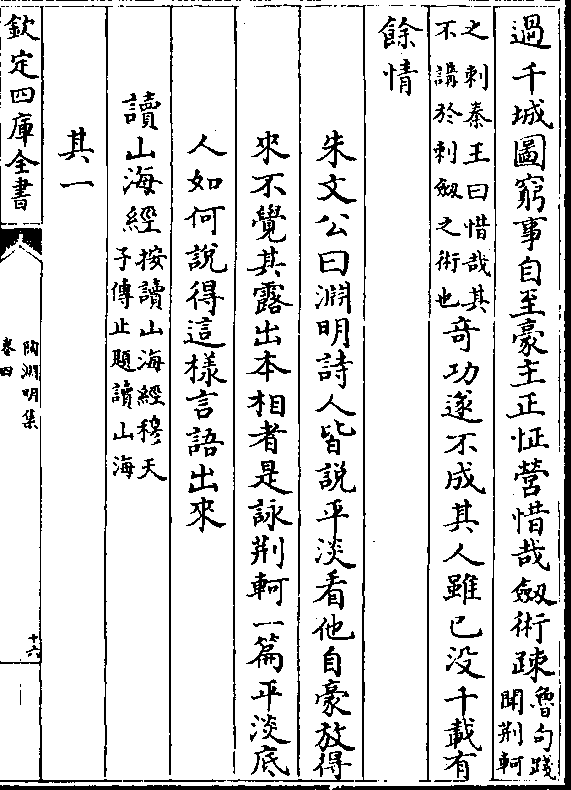 過千城圖窮事自至豪主正怔營惜哉劔術疎魯句踐聞荆軻
之刺秦王曰惜哉其不講於刺劔之術也竒功遂不成其人雖已没千載有
餘情
朱文公曰淵明詩人皆説平淡看他自豪放得
來不覺其露出本相者是詠荆軻一篇平淡底
人如何説得這樣言語出來
讀山海經按讀山海經穆天子傳止題讀山海
其一
欽定四庫全書
陶淵明集
卷四
十六